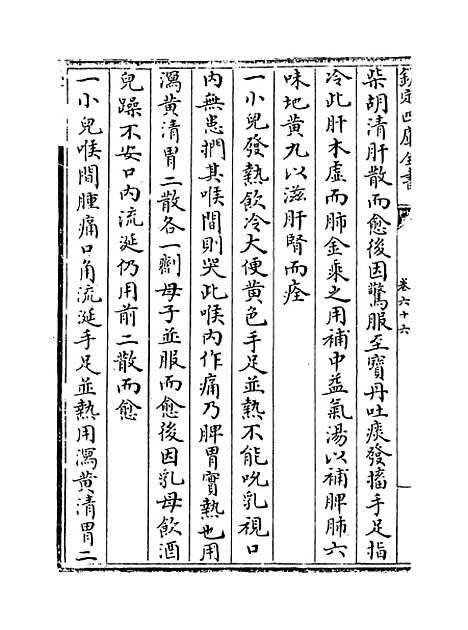 欽定四庫全書
卷六十六
柴胡清肝散而愈後因驚服至寶丹吐痰發搐手足指
冷此肝木虛而肺金乘之用補中益氣湯以補脾肺六
味地黃丸以滋肝腎而痊
一小兒發熱飲冷大便黃色手足並熱不能吮乳視口
內無患捫其喉間則哭此喉內作痛乃脾胃實熱也用
瀉黃清胃二散各一劑母子並服而愈後因乳母飲酒
兒躁不安口內流涎仍用前二散而愈
一小兒喉間腫痛口角流涎手足並熱用瀉黃清胃二